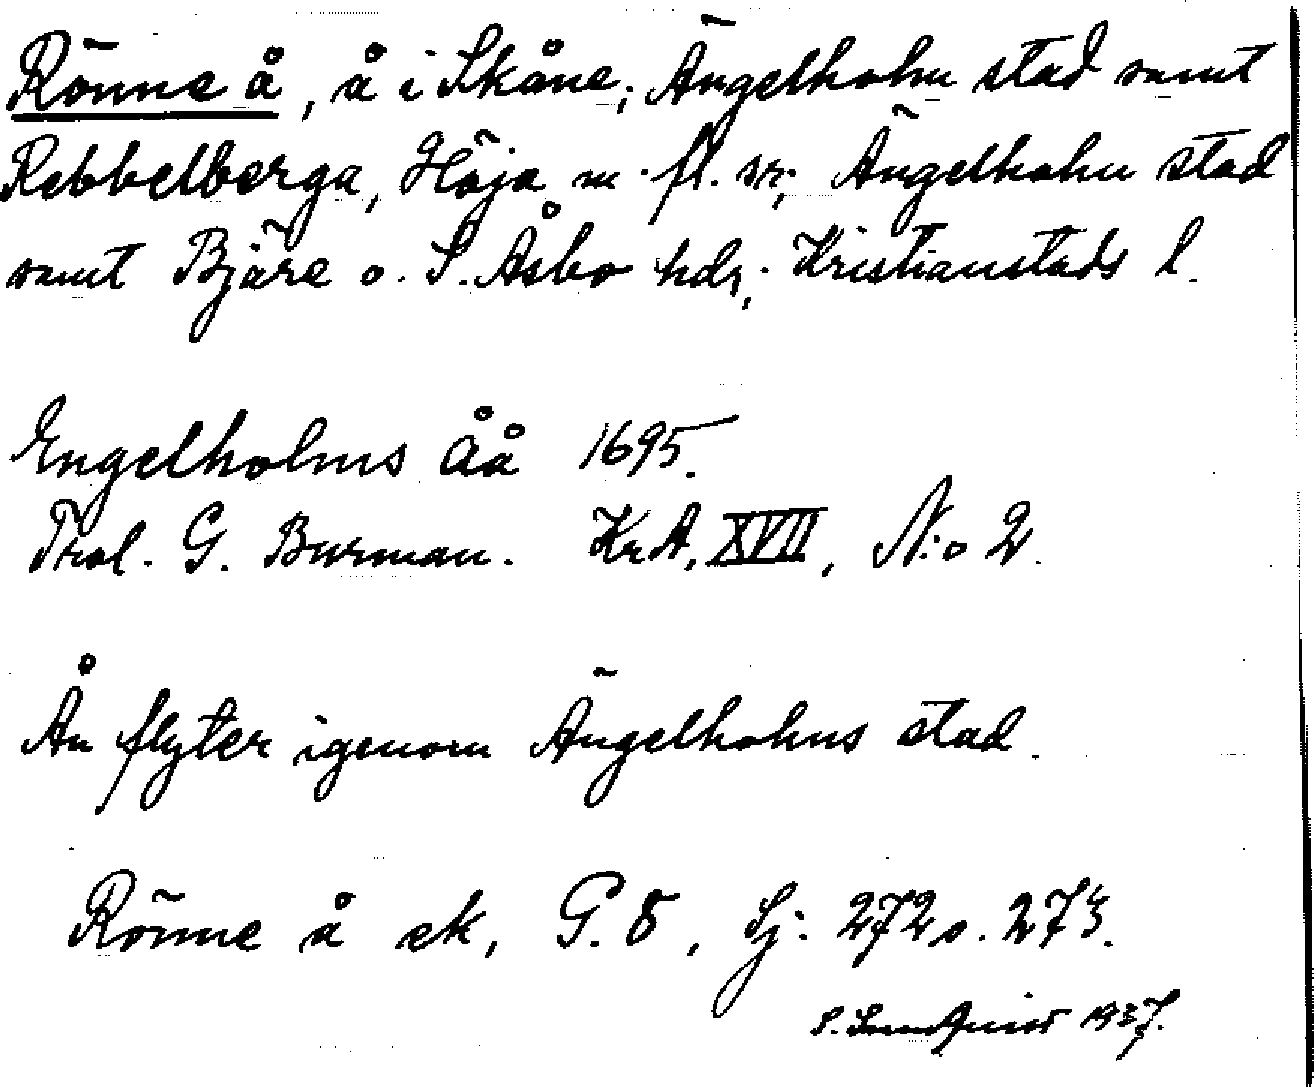 Rönne å, å i Skåne; Ängelholm stad samt
Rebbelberga, Höja m. fl. sr; Ängelholm stad
samt Bjäre o. S. Åsbo hdr; Kristianstads l.
Engelholms Åå 1695.
G. Burman. KrA, XVII, N:o 2.
Ån flyter igenom Ängelholms stad.
Rönne å ek, G. 8, Sj: 272 o. 273.
1937.